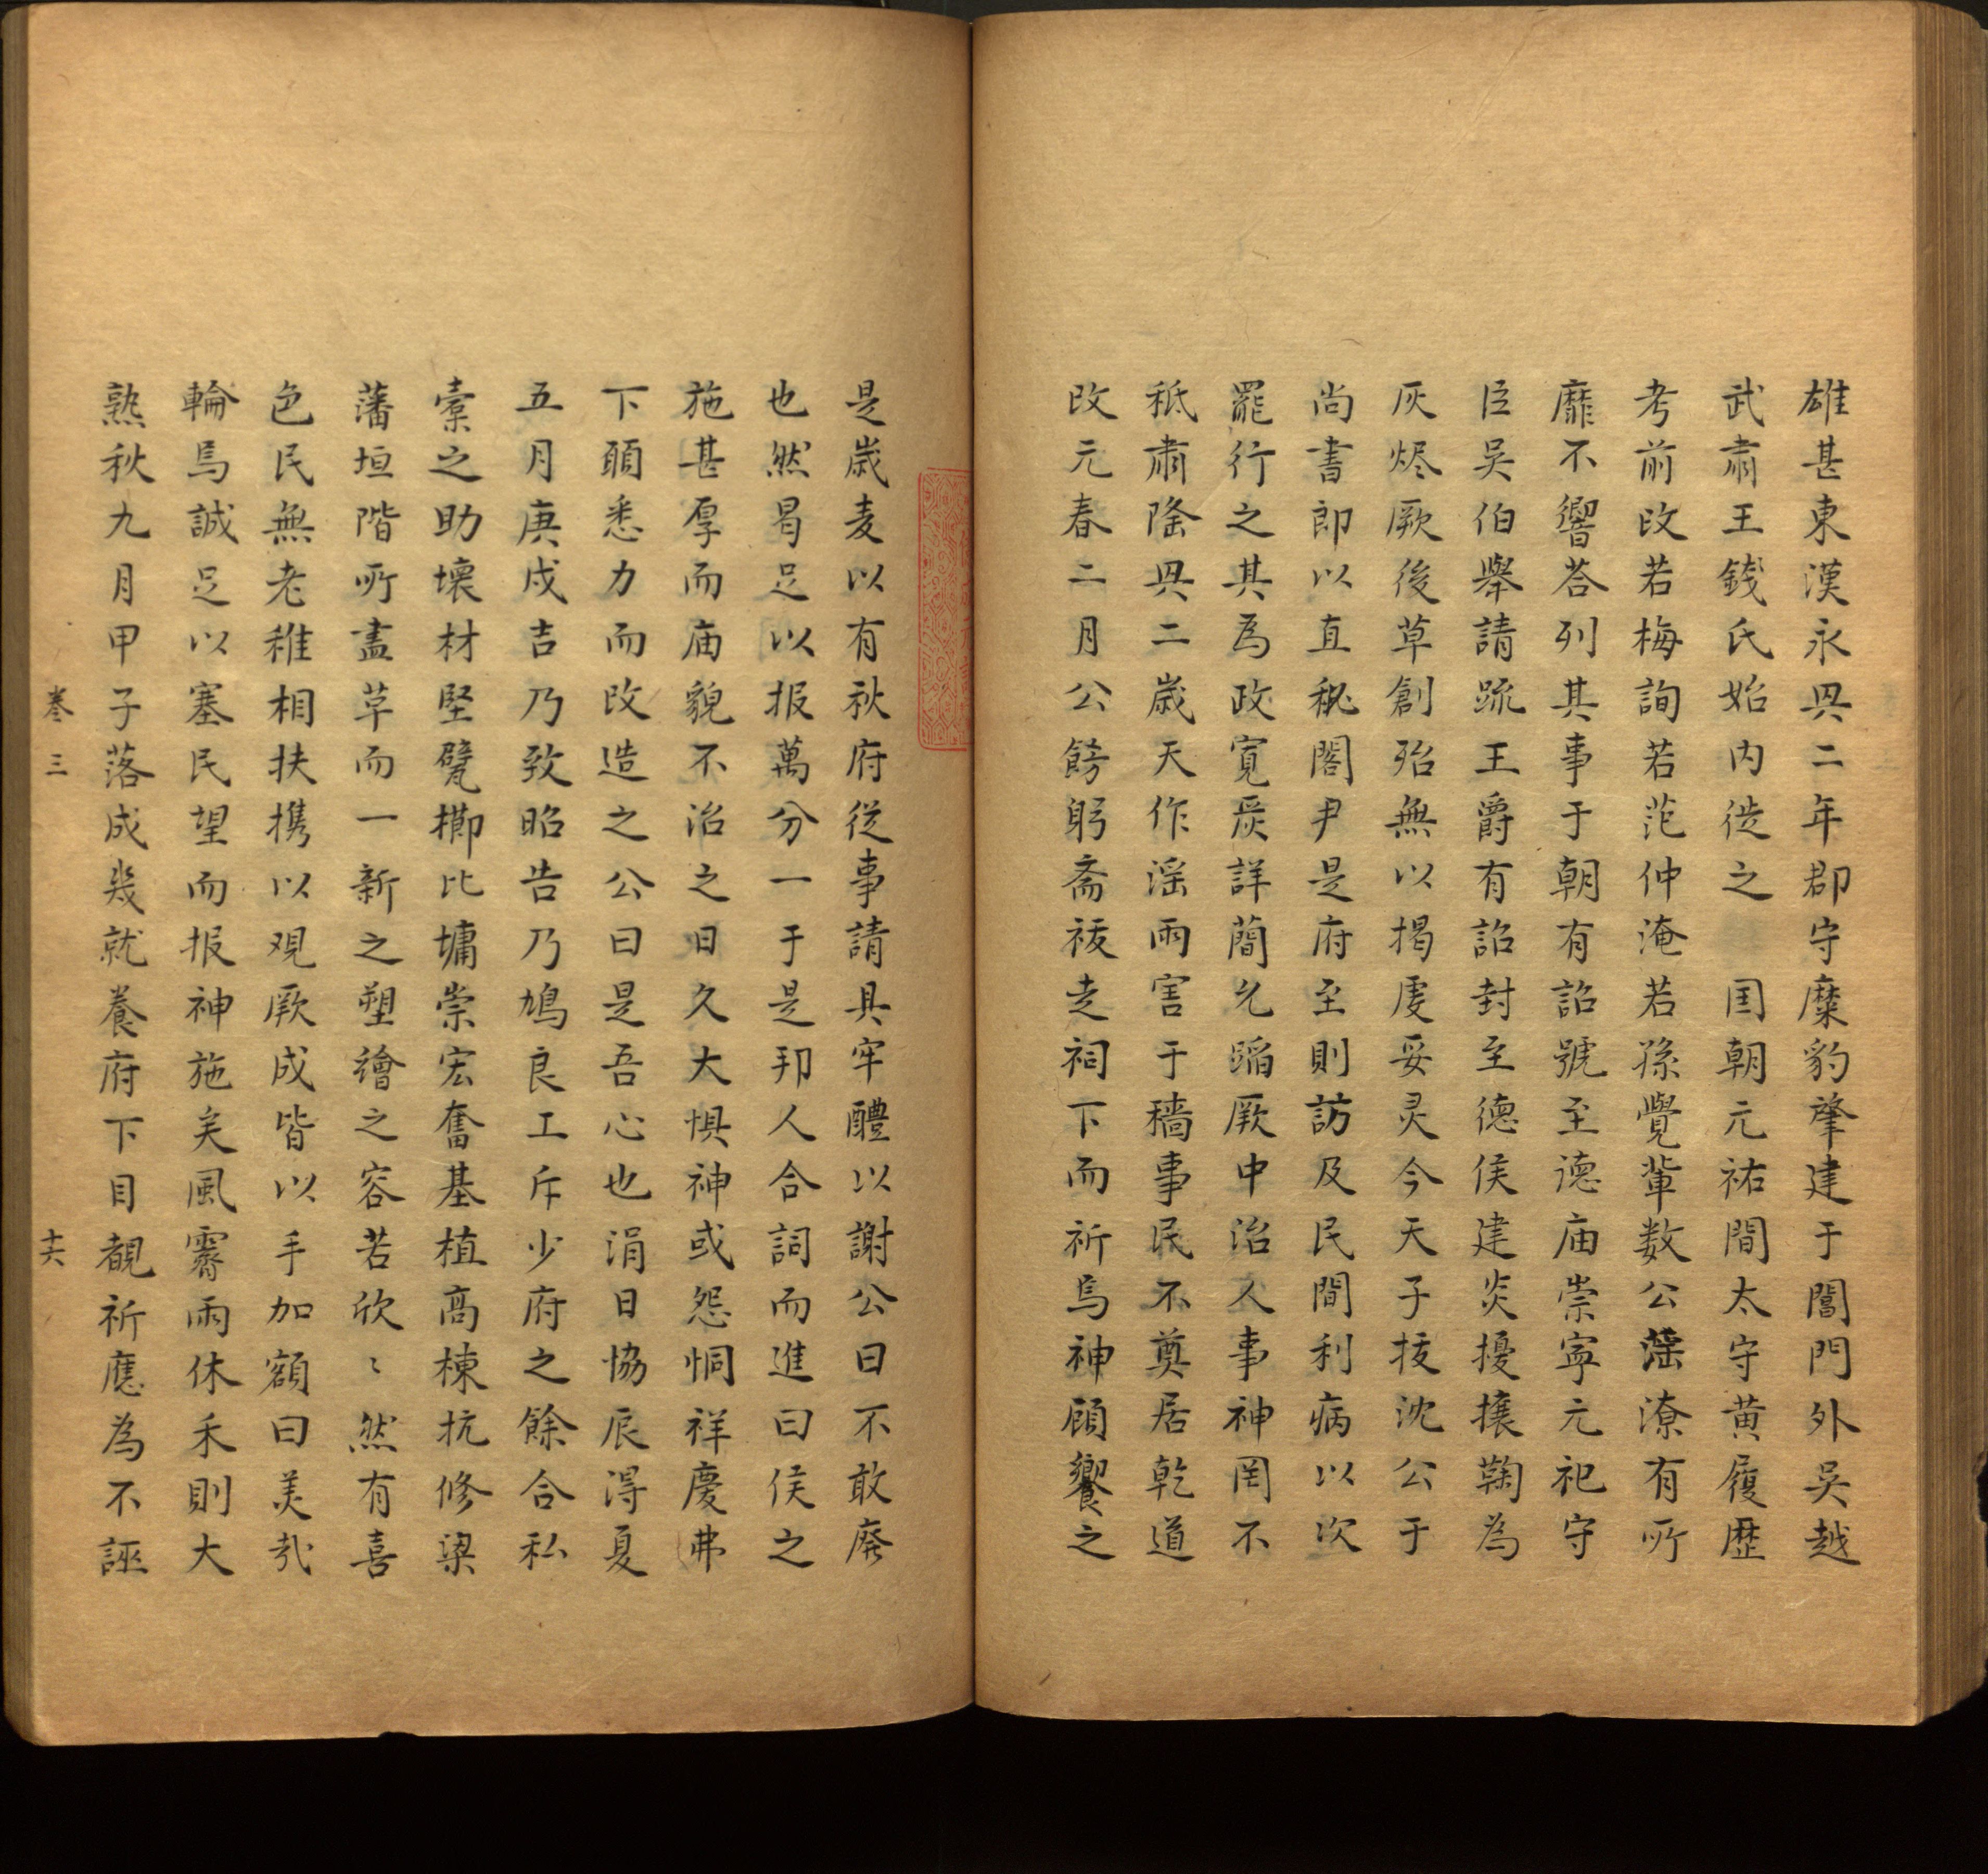 雄甚東漢永興二年郡守糜豹肇建于閶門外吳越
武肅王錢氏始內徙之　囯朝元祐間太守黄履歷
考前政若梅詢若范仲淹若孫覺輩数公滛潦有所
靡不響荅列其事于朝有詔號至德庙崇寧元祀守
臣吴伯舉請䟽王爵有詔封至德侯建炎擾攘鞠為
灰烬厥後草創殆無以揭虔妥灵今天子抜沈公于
尚書郎以直秘閣尹是府至則訪及民間利病以次
罷行之其為政寛嚴詳簡允蹈厥中治人事神罔不
秪肅隆興二歳天作滛雨害于穡事民不奠居乾道
改元春二月公餝躬斋祓走祠下而祈焉神顧饗之
是歳麦以有秋府從事請具牢醴以謝公曰不敢廃
也然曷足以报萬分一于是邦人合詞而進曰侯之
施甚厚而庙貌不治之日久大惧神或怨恫祥慶弗
下願悉力而改造之公曰是吾心也涓日協辰得夏
五月庚戍吉乃致昭告乃鳩良工斥少府之餘合私
橐之助壊材堅甓櫛比墉崇宏奮基植高棟抗修梁
藩垣階所盡草而一新之塑繪之容若欣〻然有喜
色民無老稚相扶携以观厥成皆以手加額曰美哉
輪焉誠足以塞民望而报神施矣風霽雨休禾則大
熟秋九月甲子落成㡬就養府下目覩祈應為不誣
卷三
十六